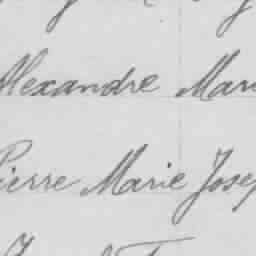 Alexandre Mari
Pierre Marie Josep